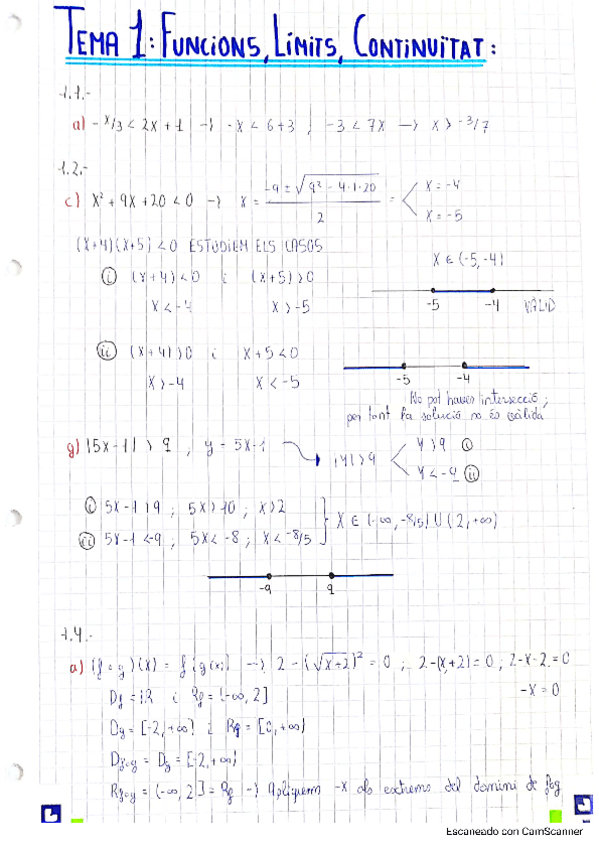 TEMA 1: FUNCIONS, LÍMITS, CONTINUÏTAT:
1.1.-
a) -x/3 < 2x + 1 → -x < 6+3 ; -3 < 7x → x > -3/7
1.2.-
c) x² + 9x + 20 < 0 → x = (-9 ± √(9² - 4·1·20))/2 = x = -4
x = -5
(x+4)(x+5) < 0 ESTUDIEM ELS CASOS
x ∈ (-5, -4)
i (x+4) < 0 i (x+5) > 0
x < -4 x > -5
-5 -4 VÀLID
ii (x+4) > 0 i x+5 < 0
x > -4 x < -5
-5 -4
No pot haver intersecció;
per tant la solució no és vàlida
g) |5x-1| > 9 , y = 5x-1 |y| > 9 y > 9 i
y < -9 ii
i 5x-1 > 9 ; 5x > 10 ; x > 2
ii 5x-1 < -9 ; 5x < -8 ; x < -8/5
x ∈ (-∞, -8/5) U (2, +∞)
-9 9
1.4.-
a) (f∘g)(x) = f(g(x)) → 2 - (√(x+2))² = 0 ; 2-(x+2) = 0 ; 2-x-2 = 0
-x = 0
Df = IR i Rf = (-∞, 2]
Dg = [-2, +∞) i Rg = [0, +∞)
Df∘g = Dg = [-2, +∞)
Rf∘g = (-∞, 2] = Rf → Apliquem -x als extrems del domini de f∘g
Escaneado con CamScanner